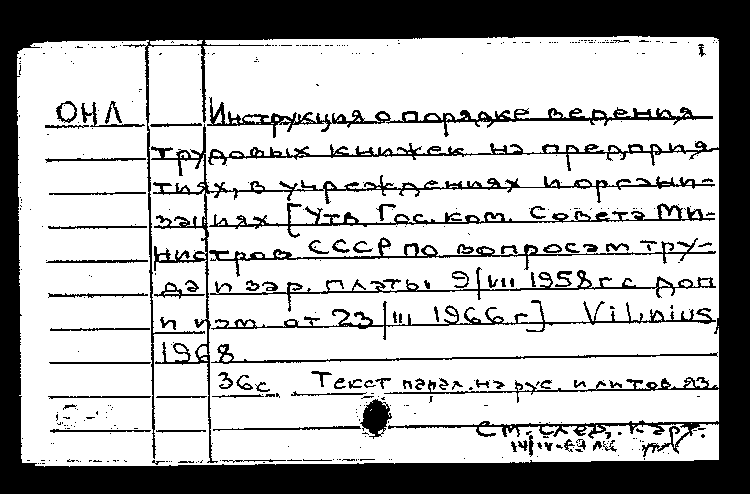 1
ОНЛ Инструкция о порядке ведения
трудовых книжек на предприя-
тиях, в учреждениях и органи-
зациях [Утв. Гос. ком. Совета Ми-
нистров СССР по вопросам тру-
да и зар. платы 9/VII 1958 г с доп
и изм. от 23/III 1966 г]. Vilnius,
1968.
36с. Текст парал. на рус. и литов. яз.
См. след. карт.
14/IV-69